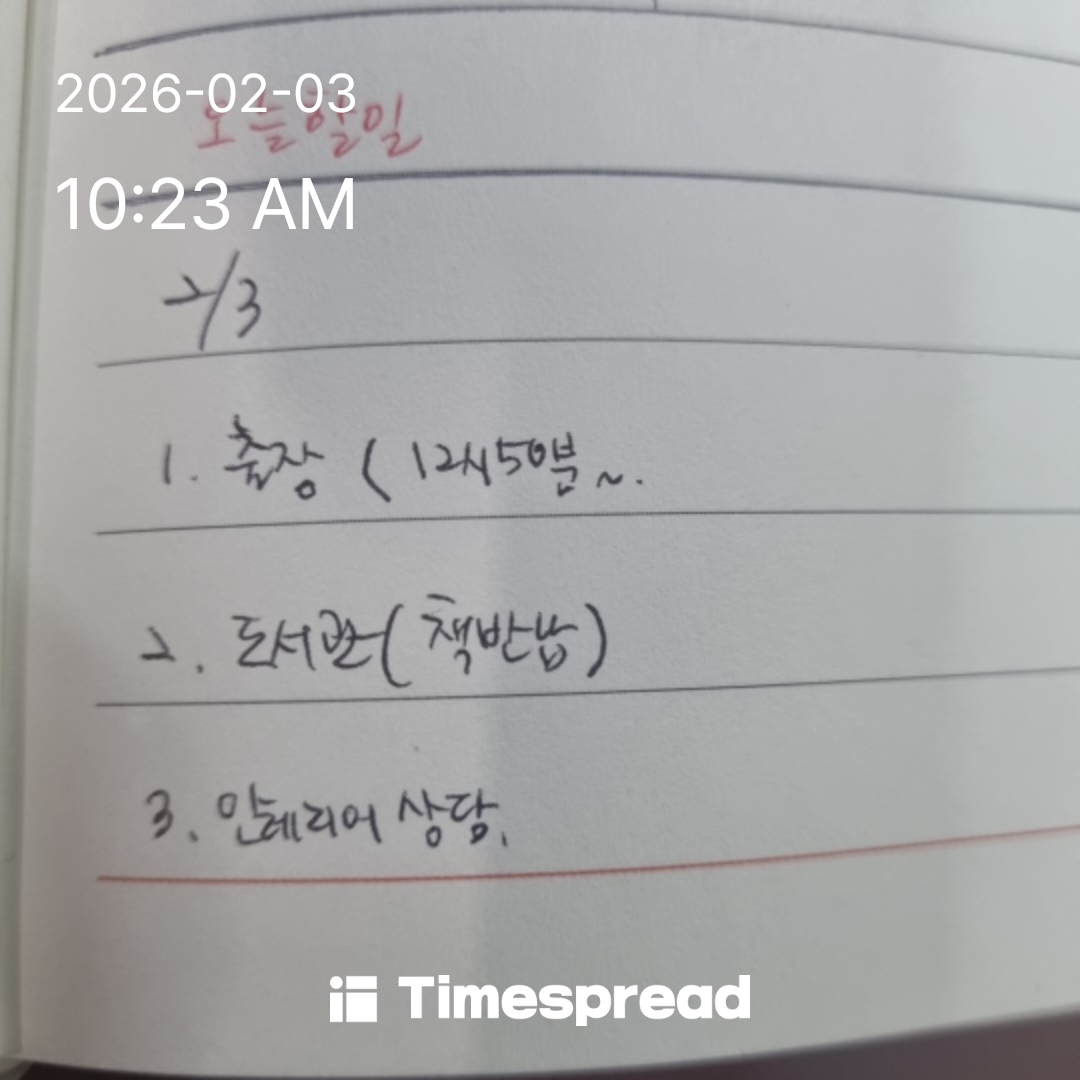 2026-02-03
오늘할일
10:23 AM
2/3
1. 출장 ( 12시50분~.
2. 도서관(책반납)
3. 인테리어 상담.
Timespread